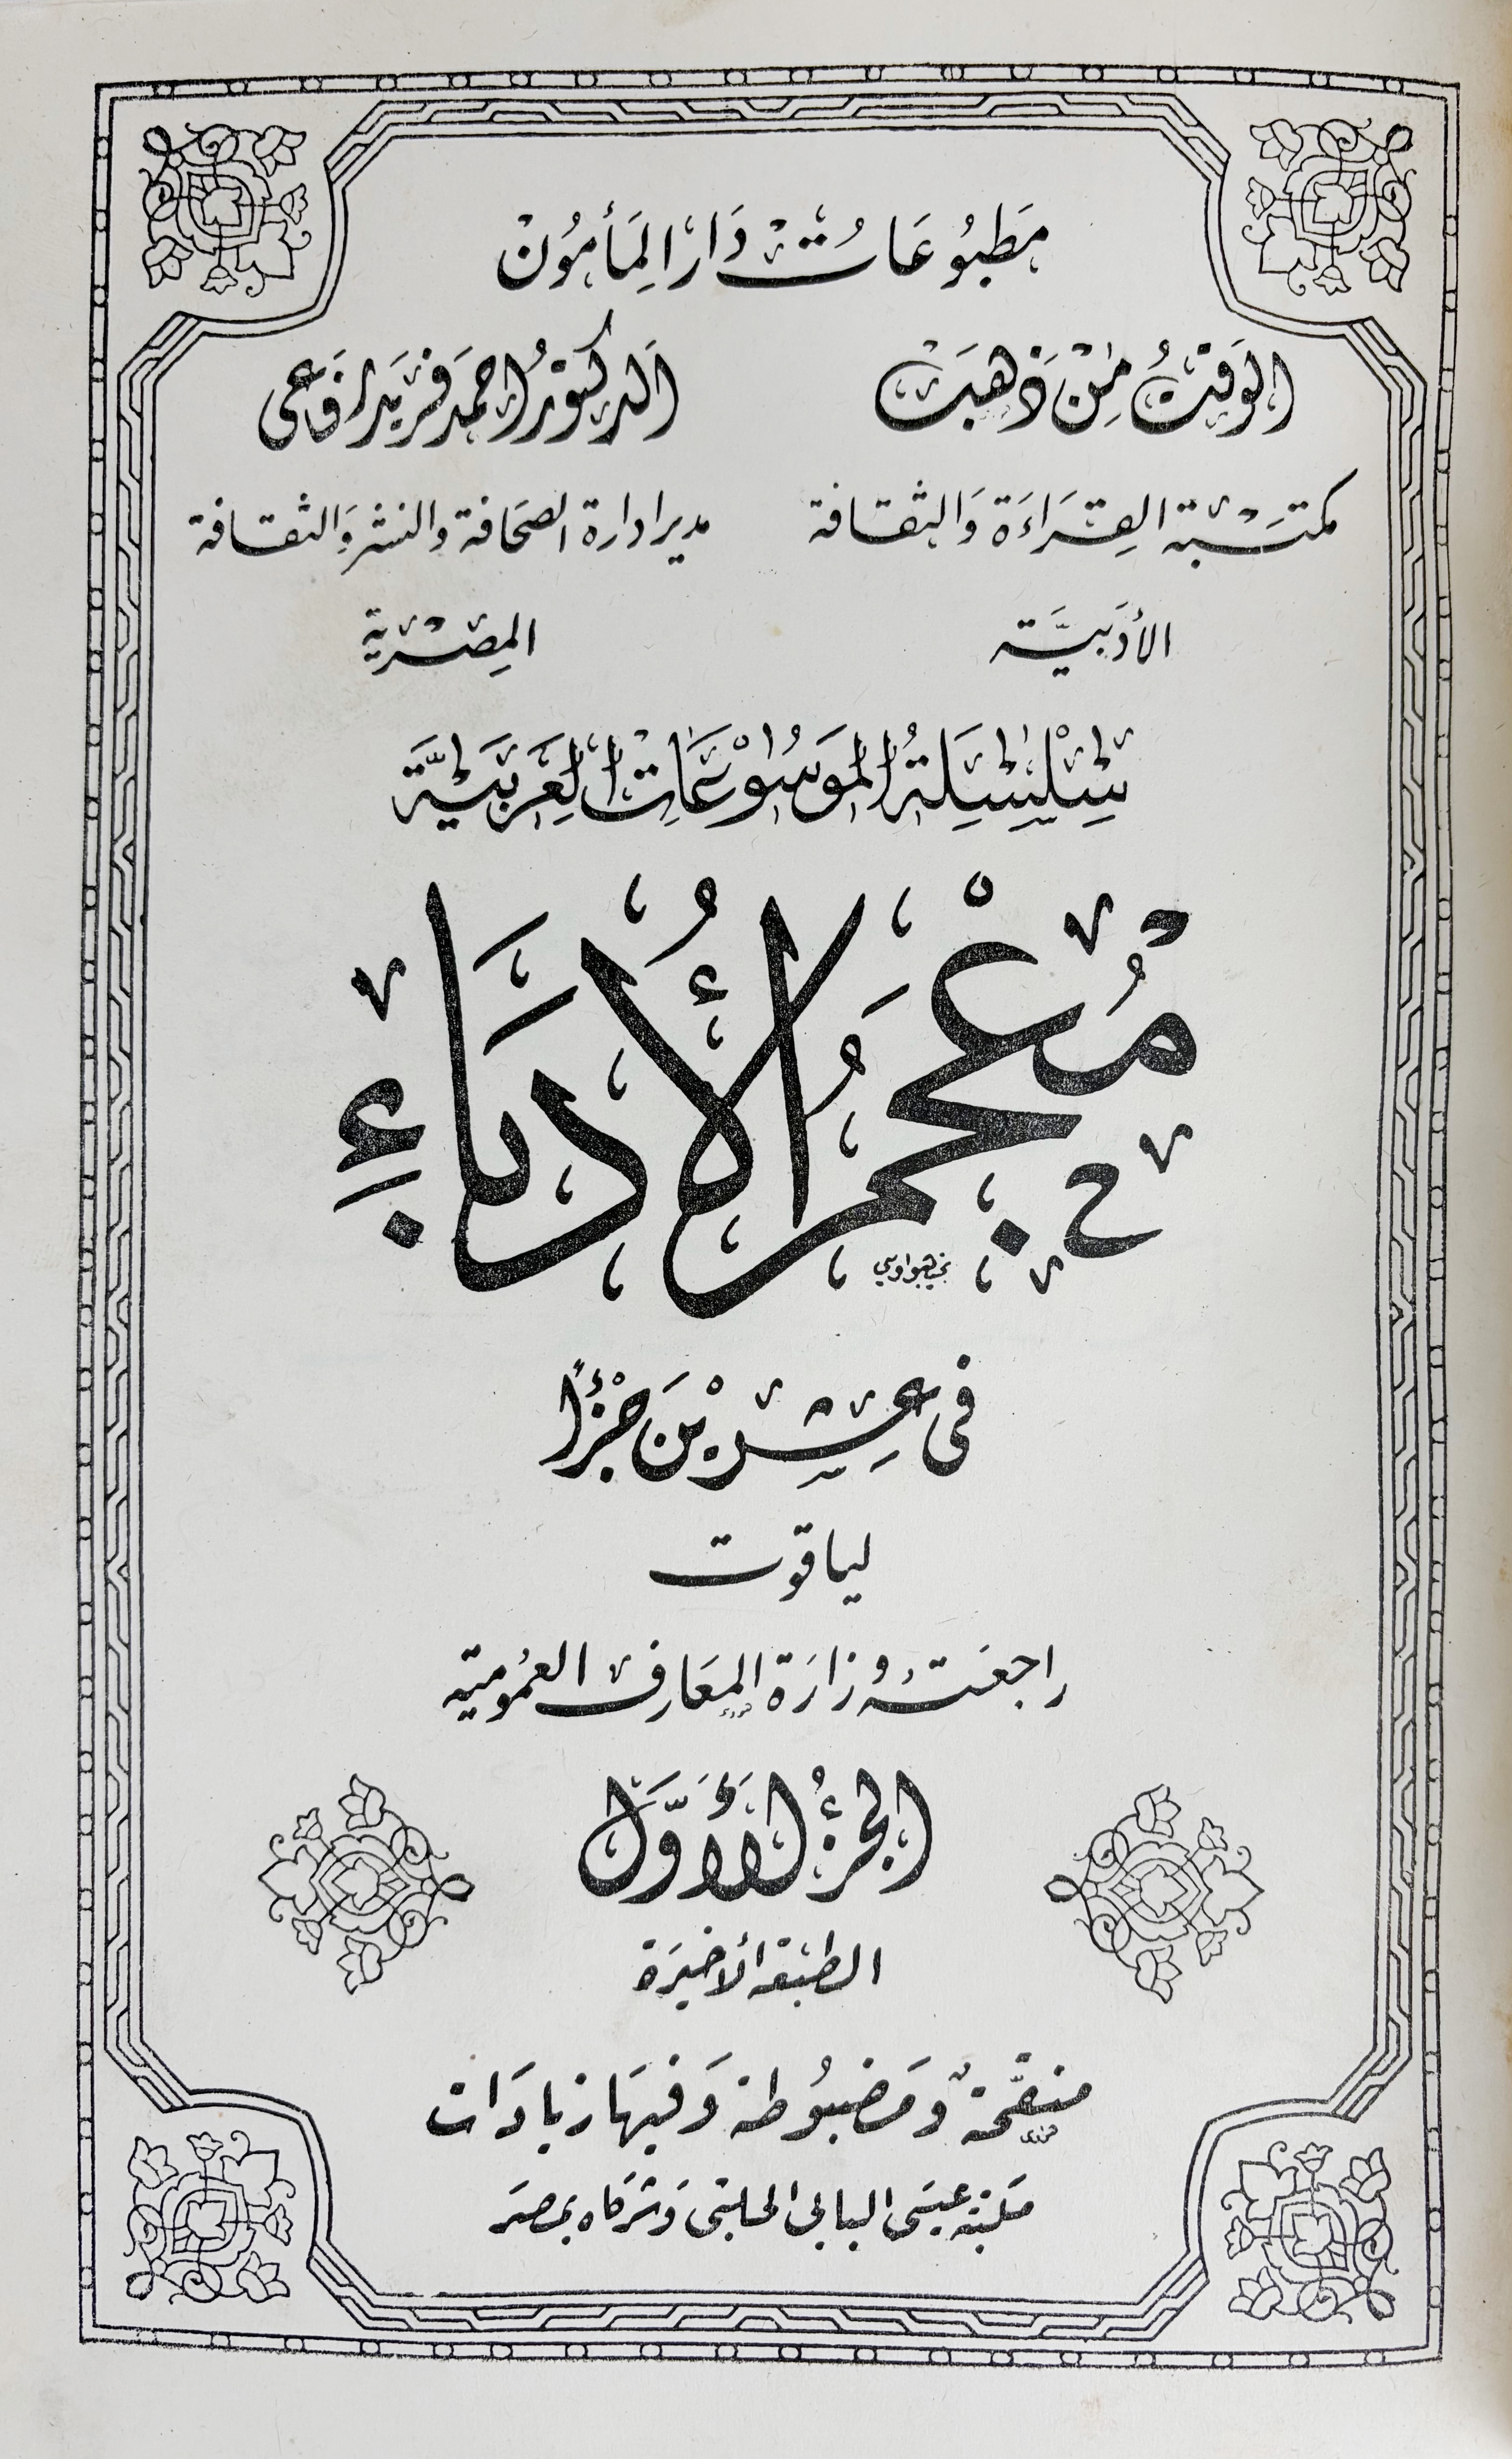 مَطبُوعَاتُ دَارِ المَأمُون
الوَقتُ مِن ذَهبَ
الَدكتورُ احمَد فريَد رفَاعى
مكتَبة القِرَاءَة وَالثقافة
مدير ادارة الصحَافة والنشر وَالثقافة
الأدَبيَّة
المِصْرية
سِلْسِلَةُ المَوسُوْعَاتِ العَرَبيَّة
مُعْجَمُ الأُدَبَاءِ
فى عِشِرْينَ جُزْءًا
لياقوت
راجعَته وُزارَة المعَارف العمُومية
الجزءُ الأَوَّلَ
الطبَعة الأخيرَة
منقَّحة وَمَضبُوطة وَفيهَا زيادَات
مَكتبة عيسَى البابى الحلبَى وَشركاه بمصرَ